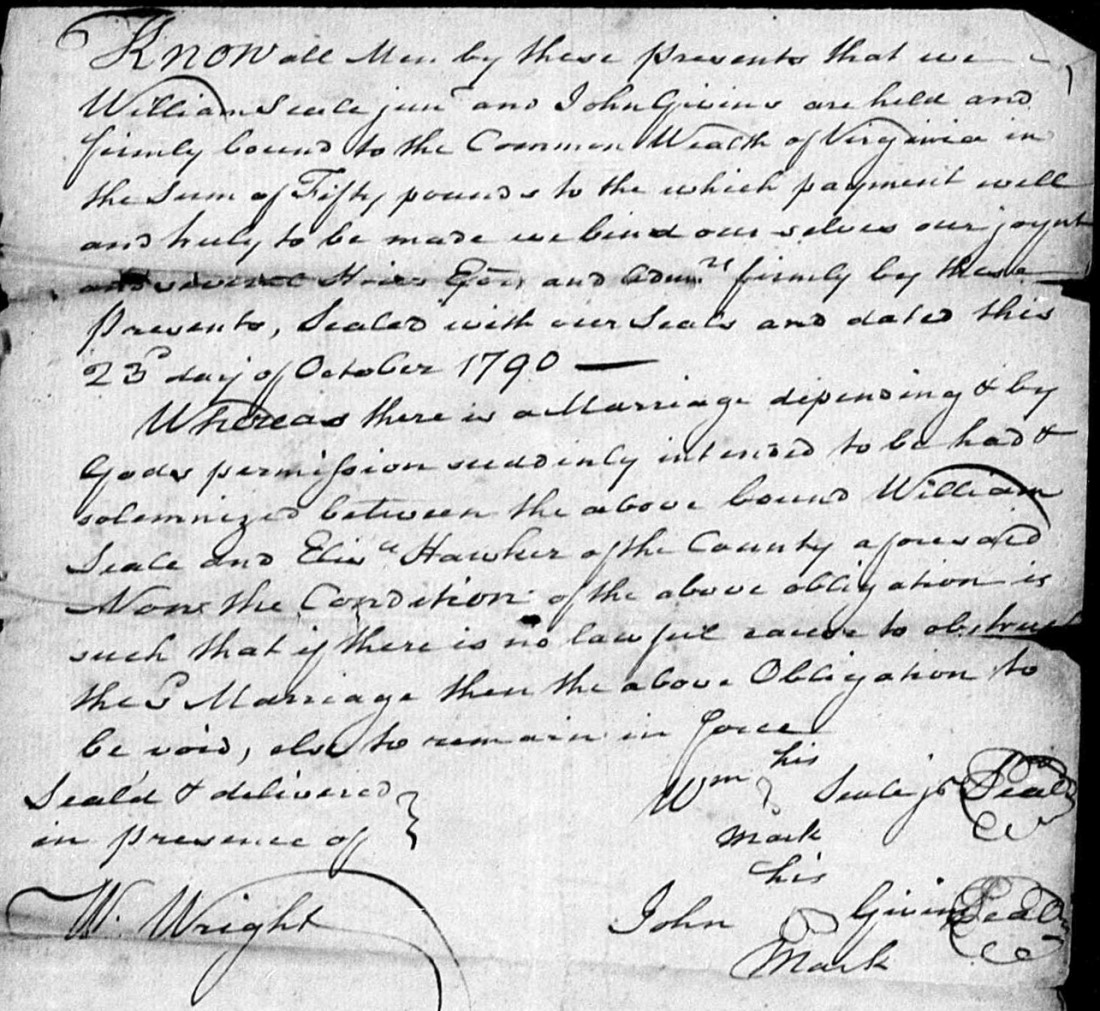 Know all Men by these presents that we
William Seale junr and John Givins are held and
firmly bound to the Common Wealth of Virginia in
the Sum of Fifty pounds to the which payment well
and truly to be made we bind our selves our joynt
and several Heirs Exors and Admrs firmly by these
Presents, Sealed with our Seals and dated this
23d day of October 1790 —
Whereas there is a Marriage depending & by
Gods permission suddenly intended to be had &
solemnized between the above bound William
Seale and Eliza Hawker of the County aforesaid
Now the Condition of the above obligation is
such that if there is no lawful cause to obstruct
the sd Marriage then the above Obligation to
be void, else to remain in force
his
Seald & delivered } Wm Seale jr Seal
in presence of Mark
his
W. Wright John Givins Seal
Mark